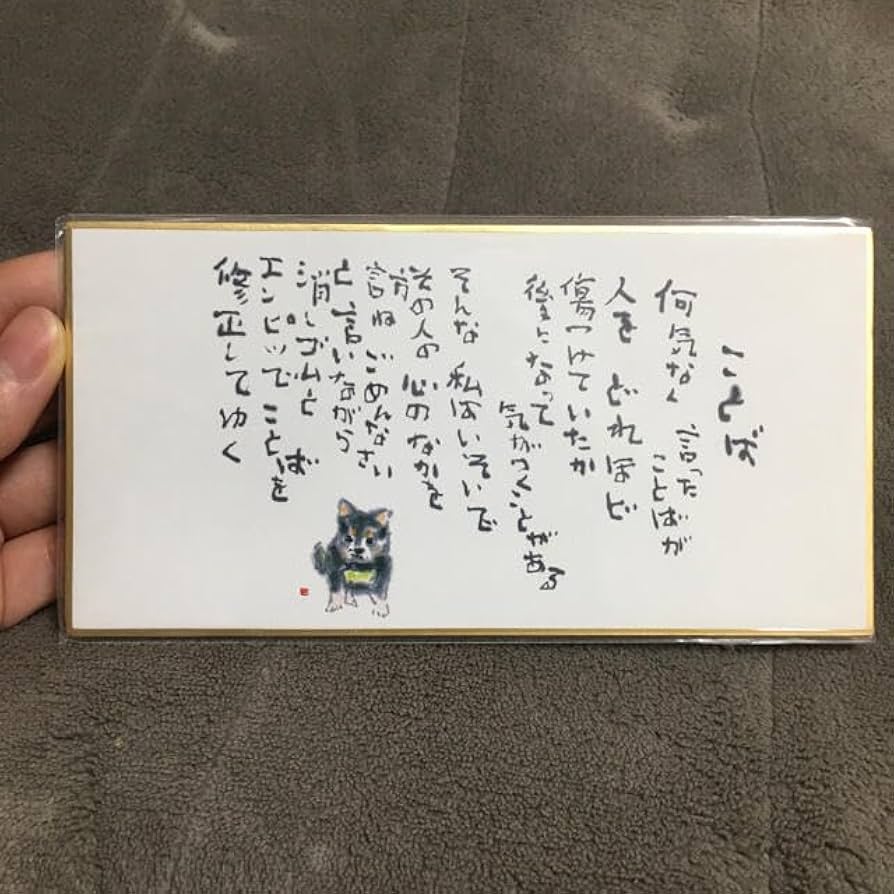 ことば
何気なく 言った
ことばが
人を どれほど
傷つけていたか
後になって
気がつくことがある
そんな 私はいそいで
その人の心のなかを
訪ね ごめんなさい
と言いながら
消しゴムと
エンピツで ことばを
修正してゆく